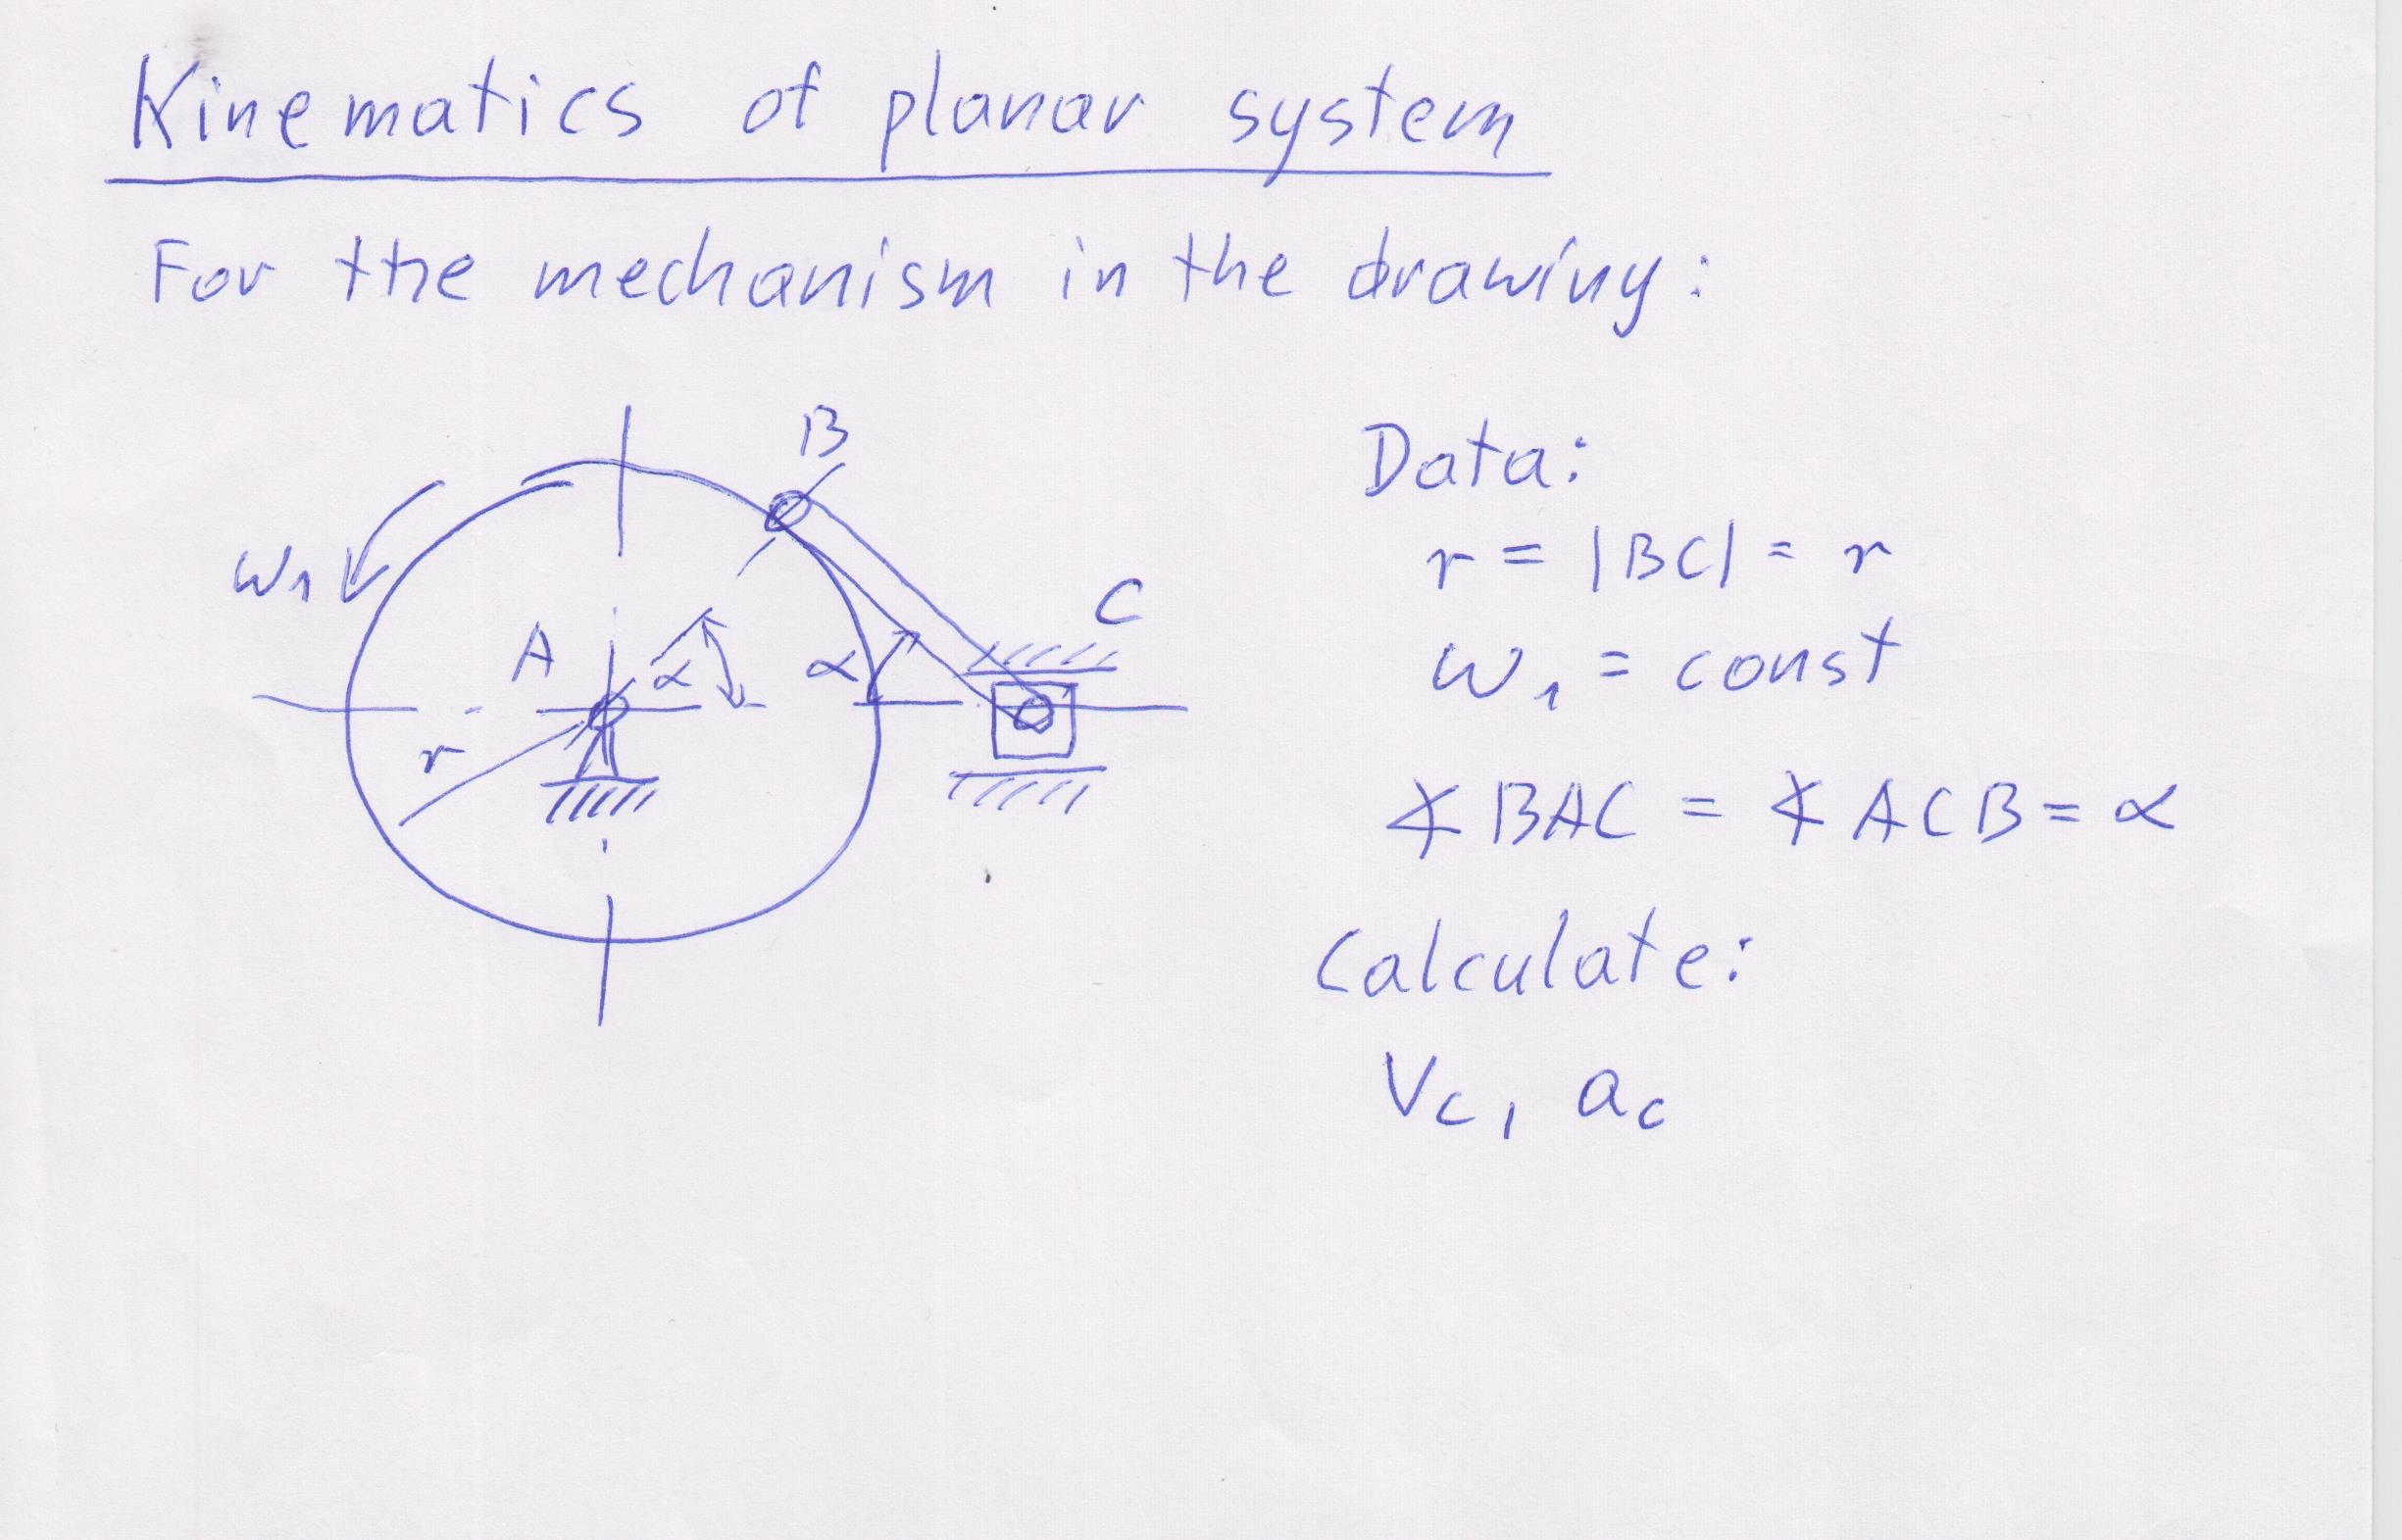 Kinematics of planar system
For the mechanism in the drawing:
B
ω₁
A
α
α
C
r
Data:
r = |BC| = r
ω₁ = const
∢ BAC = ∢ ACB = α
Calculate:
Vc, ac